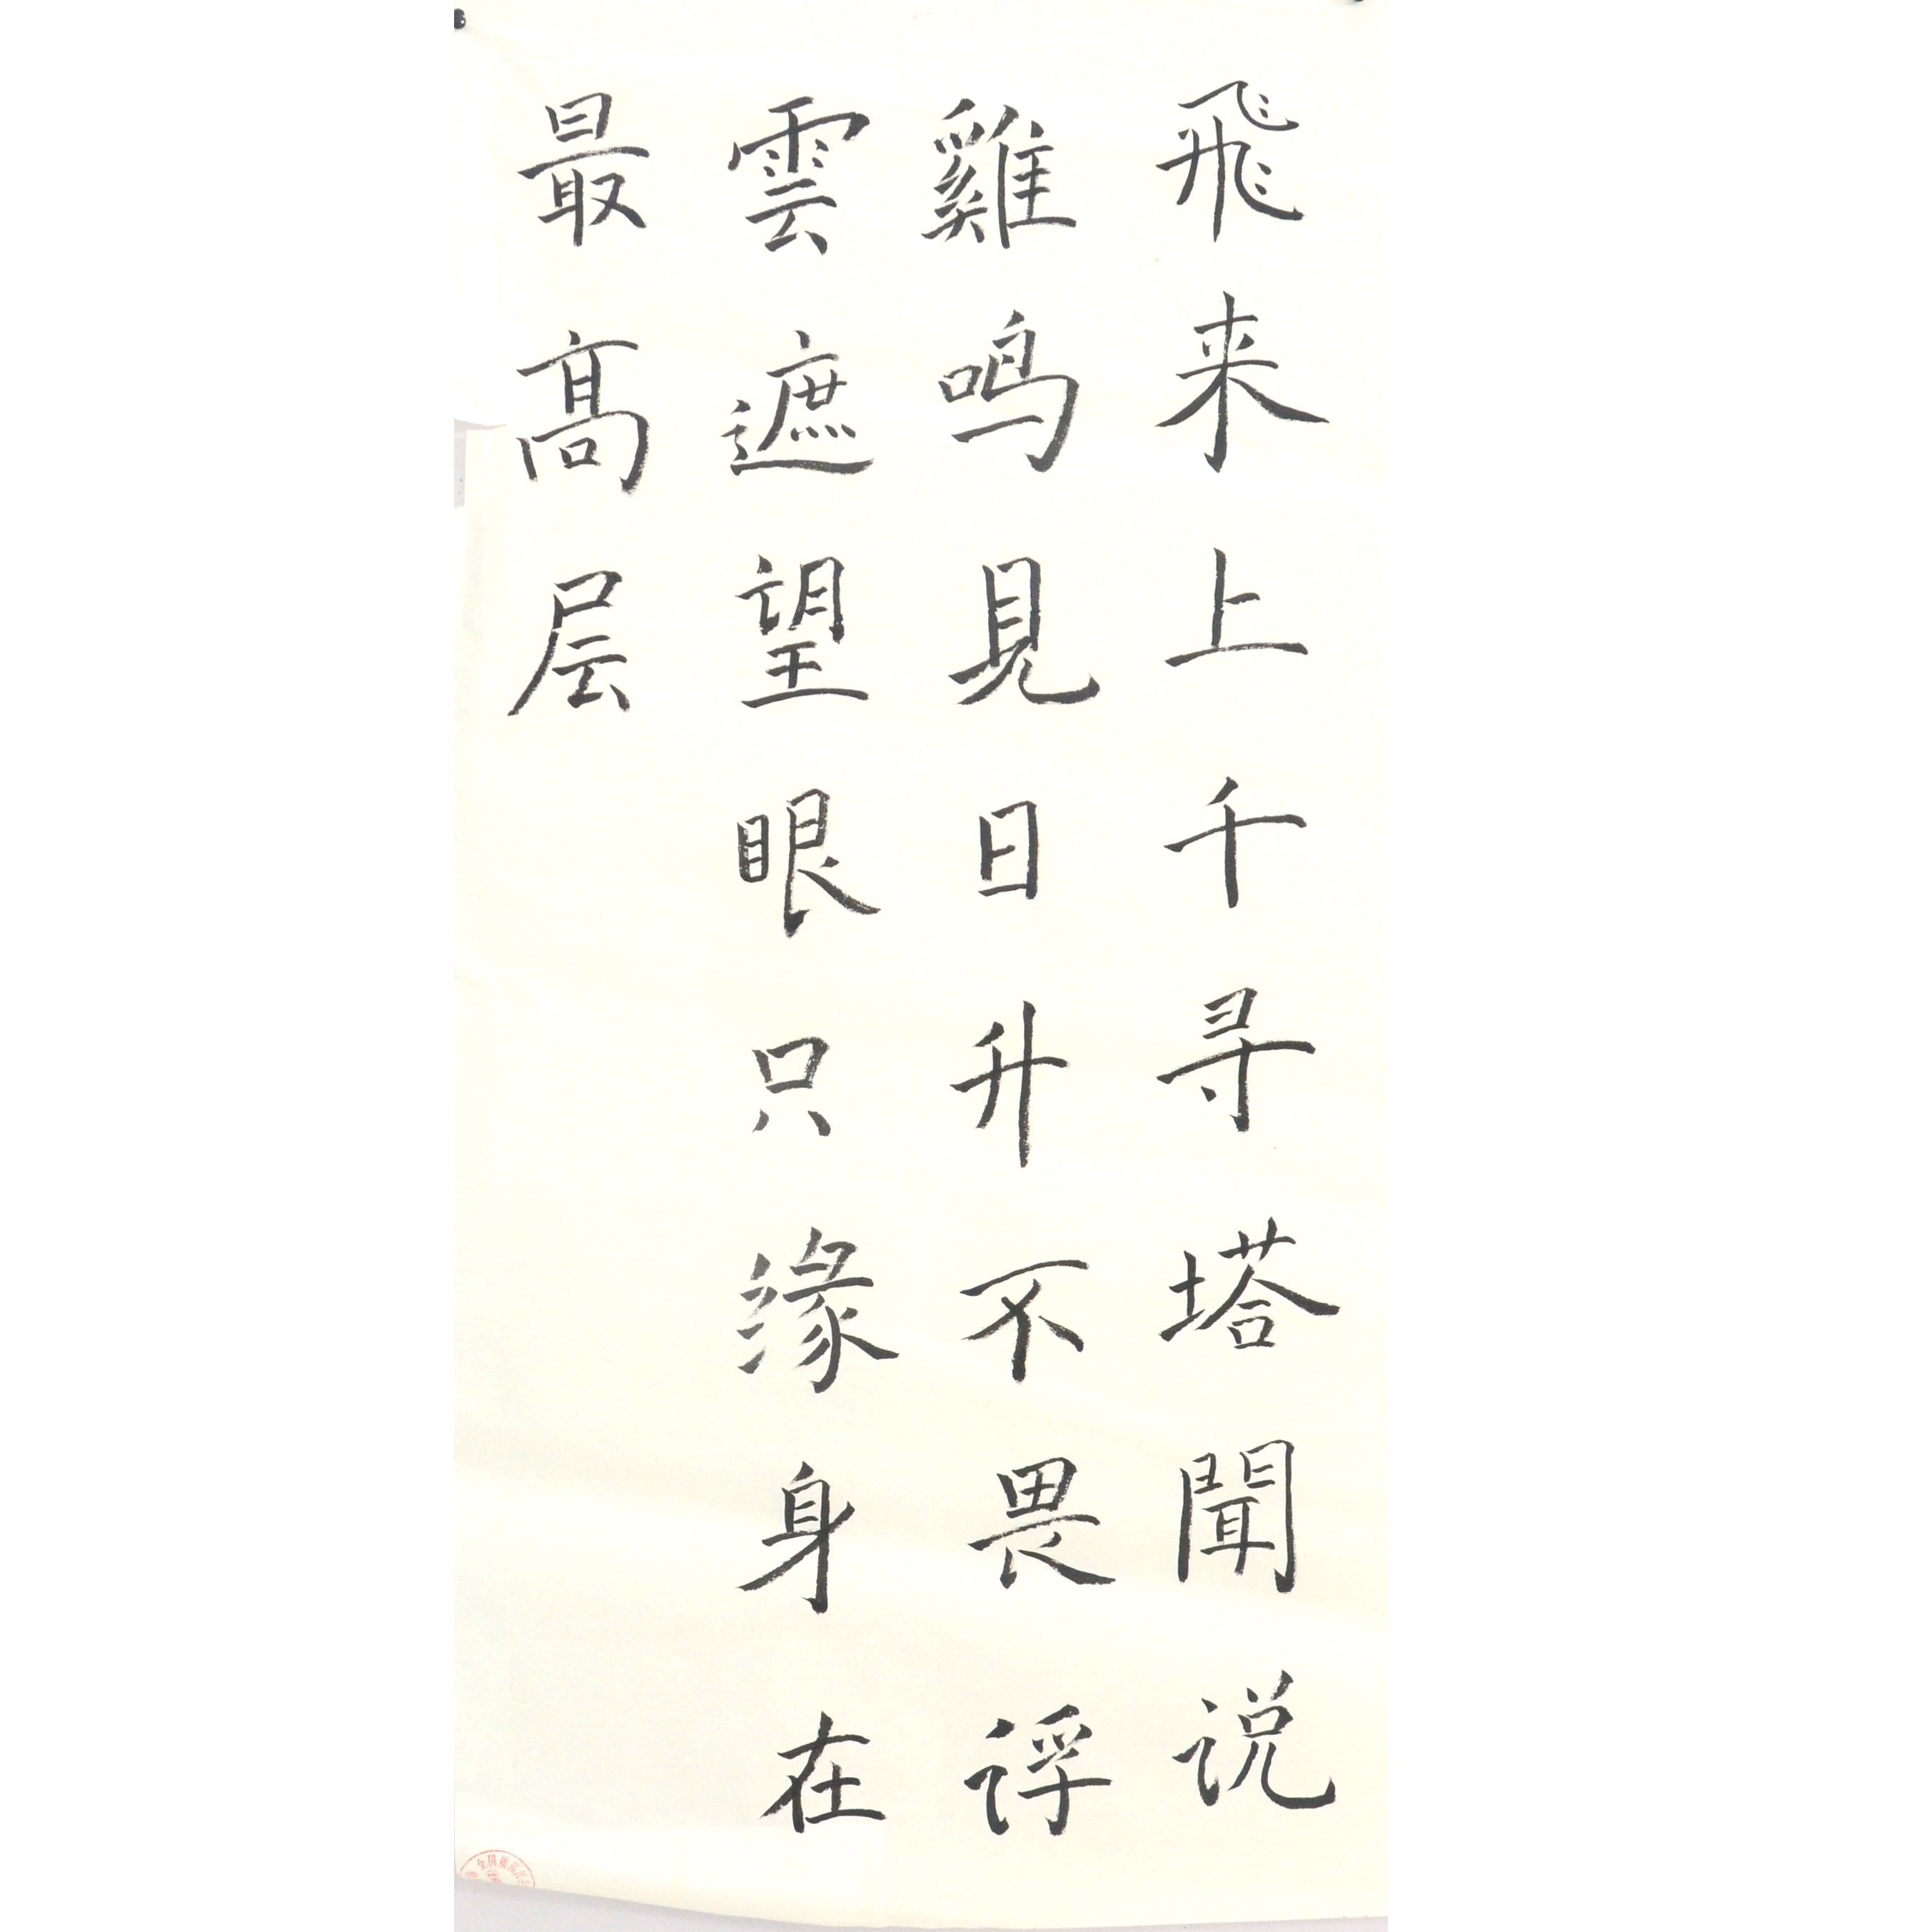 飛来上千寻塔聞说
雞鸣見日升不畏䛔
雲遮望眼只缘身在
最高层